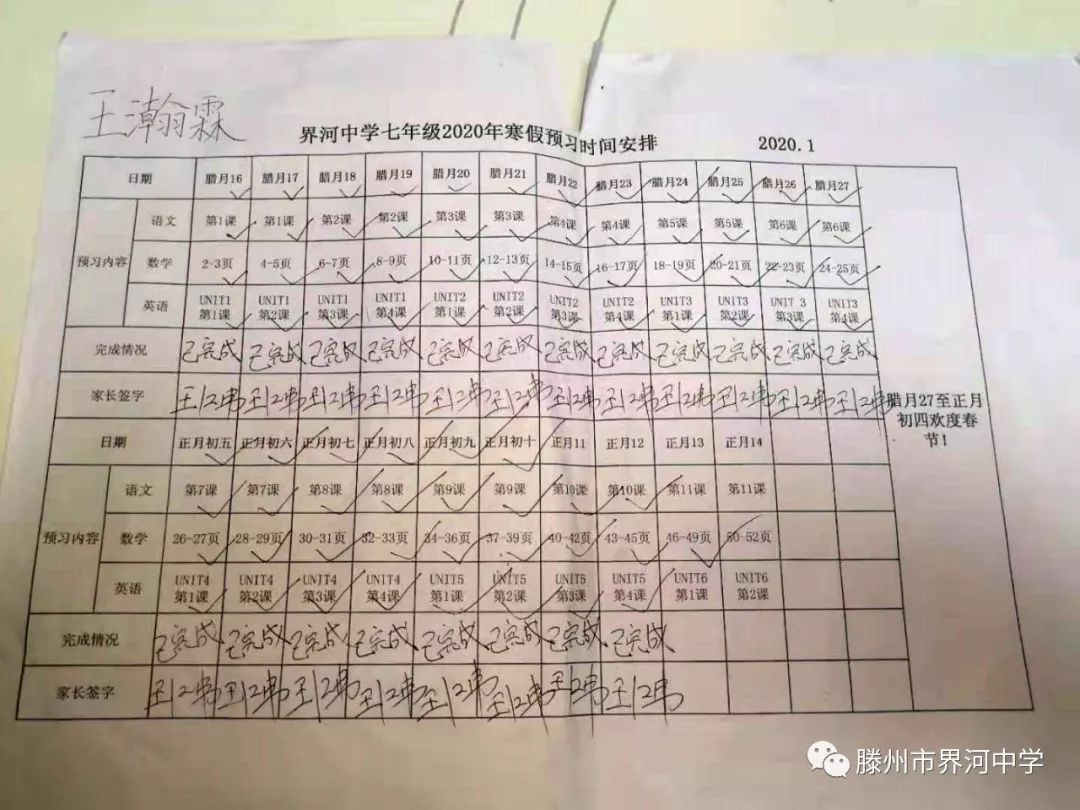 王瀚霖
界河中学七年级2020年寒假预习时间安排 2020.1
日期 腊月16 腊月17 腊月18 腊月19 腊月20 腊月21 腊月22 腊月23 腊月24 腊月25 腊月26 腊月27
预习内容
语文 第1课 第1课 第2课 第2课 第3课 第3课 第4课 第4课 第5课 第5课 第6课 第6课
数学 2-3页 4-5页 6-7页 8-9页 10-11页 12-13页 14-15页 16-17页 18-19页 20-21页 22-23页 24-25页
英语 UNIT1 UNIT1 UNIT1 UNIT1 UNIT2 UNIT2 UNIT2 UNIT2 UNIT3 UNIT3 UNIT 3 UNIT3
第1课 第2课 第3课 第4课 第1课 第2课 第3课 第4课 第1课 第2课 第3课 第4课
完成情况 已完成 已完成 已完成 已完成 已完成 已完成 已完成 已完成 已完成 已完成 已完成 已完成
家长签字
腊月27至正月
初四欢度春
节!
日期 正月初五 正月初六 正月初七 正月初八 正月初九 正月初十 正月11 正月12 正月13 正月14
预习内容
语文 第7课 第7课 第8课 第8课 第9课 第9课 第10课 第10课 第11课 第11课
数学 26-27页 28-29页 30-31页 32-33页 34-36页 37-39页 40-42页 43-45页 46-49页 50-52页
英语 UNIT4 UNIT4 UNIT4 UNIT4 UNIT5 UNIT5 UNIT5 UNIT5 UNIT6 UNIT6
第1课 第2课 第3课 第4课 第1课 第2课 第3课 第4课 第1课 第2课
完成情况 已完成 已完成 已完成 已完成 已完成 已完成 已完成 已完成
家长签字
滕州市界河中学